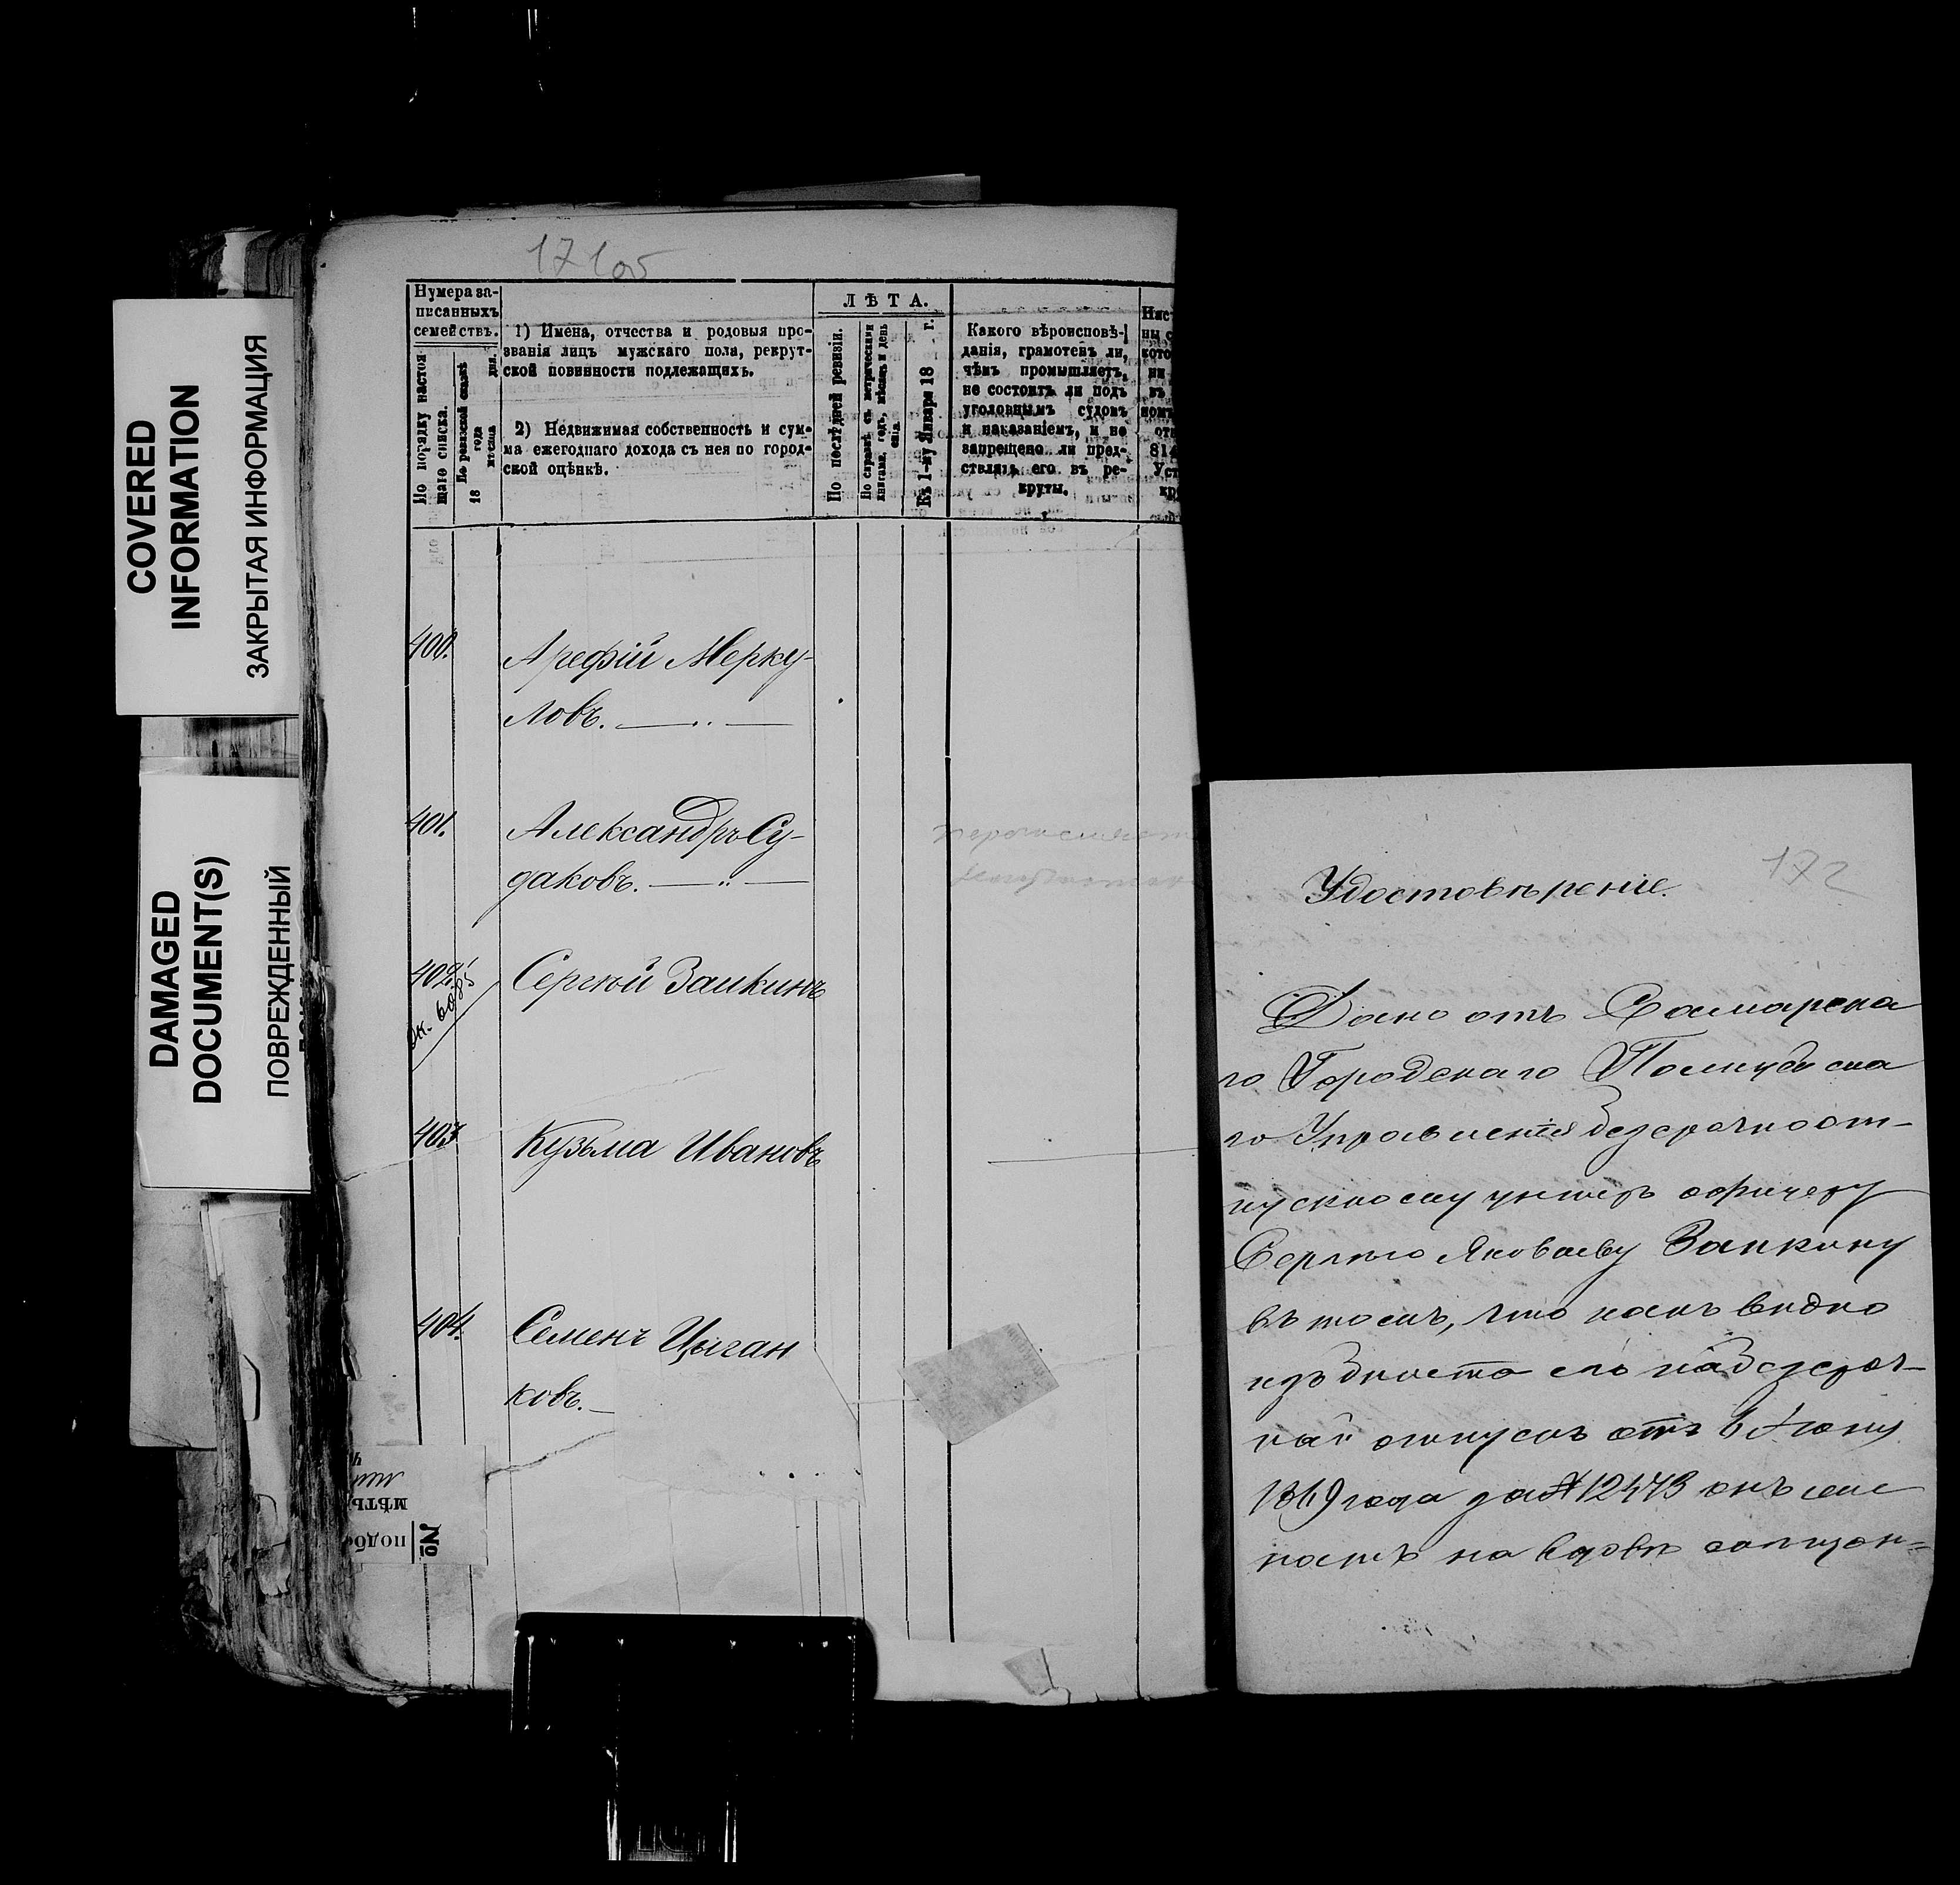 COVERED
INFORMATION
ЗАКРЫТАЯ ИНФОРМАЦИЯ
DAMAGED
DOCUMENT(S)
ПОВРЕЖДЕННЫЙ
171об
Нумера за-
писанныхъ
семействъ.
По порядку настоя-
щаго списка.
По ревизской сказкѣ
18 года
мѣсяца дня.
1) Имена, отчества и родовыя про-
званія лицъ мужскаго пола, рекрут-
ской повинности подлежащихъ.
2) Недвижимая собственность и сум-
ма ежегоднаго дохода съ нея по город-
ской оцѣнкѣ.
ЛѢТА.
По послѣдней ревизіи.
По справкѣ съ метрическими
книгами, годъ, мѣсяцъ и день
Къ 1-му Января 18 г.
Какого вѣроисповѣ-
данія, грамотенъ ли,
чѣмъ промышляетъ,
не состоитъ ли подъ
уголовнымъ судомъ
и наказаніемъ, и не
запрещено ли пред-
ствлять его въ ре-
круты.
400.
Арефій Мерку-
ловъ.
401.
Александръ Су-
даковъ.
402
Сергѣй Заикинъ
403
Кузьма Ивановъ
404.
Семенъ Цыган
ковъ.
№
172
Удостовѣреніе.
Дано отъ Самарска
го Городскаго Полицейска
го Управленія безсрочноот-
пускному унтеръ офицеру
Сергѣю Яковлеву Заикину
въ томъ, что какъ видно
изъ билета его на безсроч-
ный отпускъ отъ 6 Іюня
1869 года за № 12473 онъ же
натъ на вдовѣ солдат=